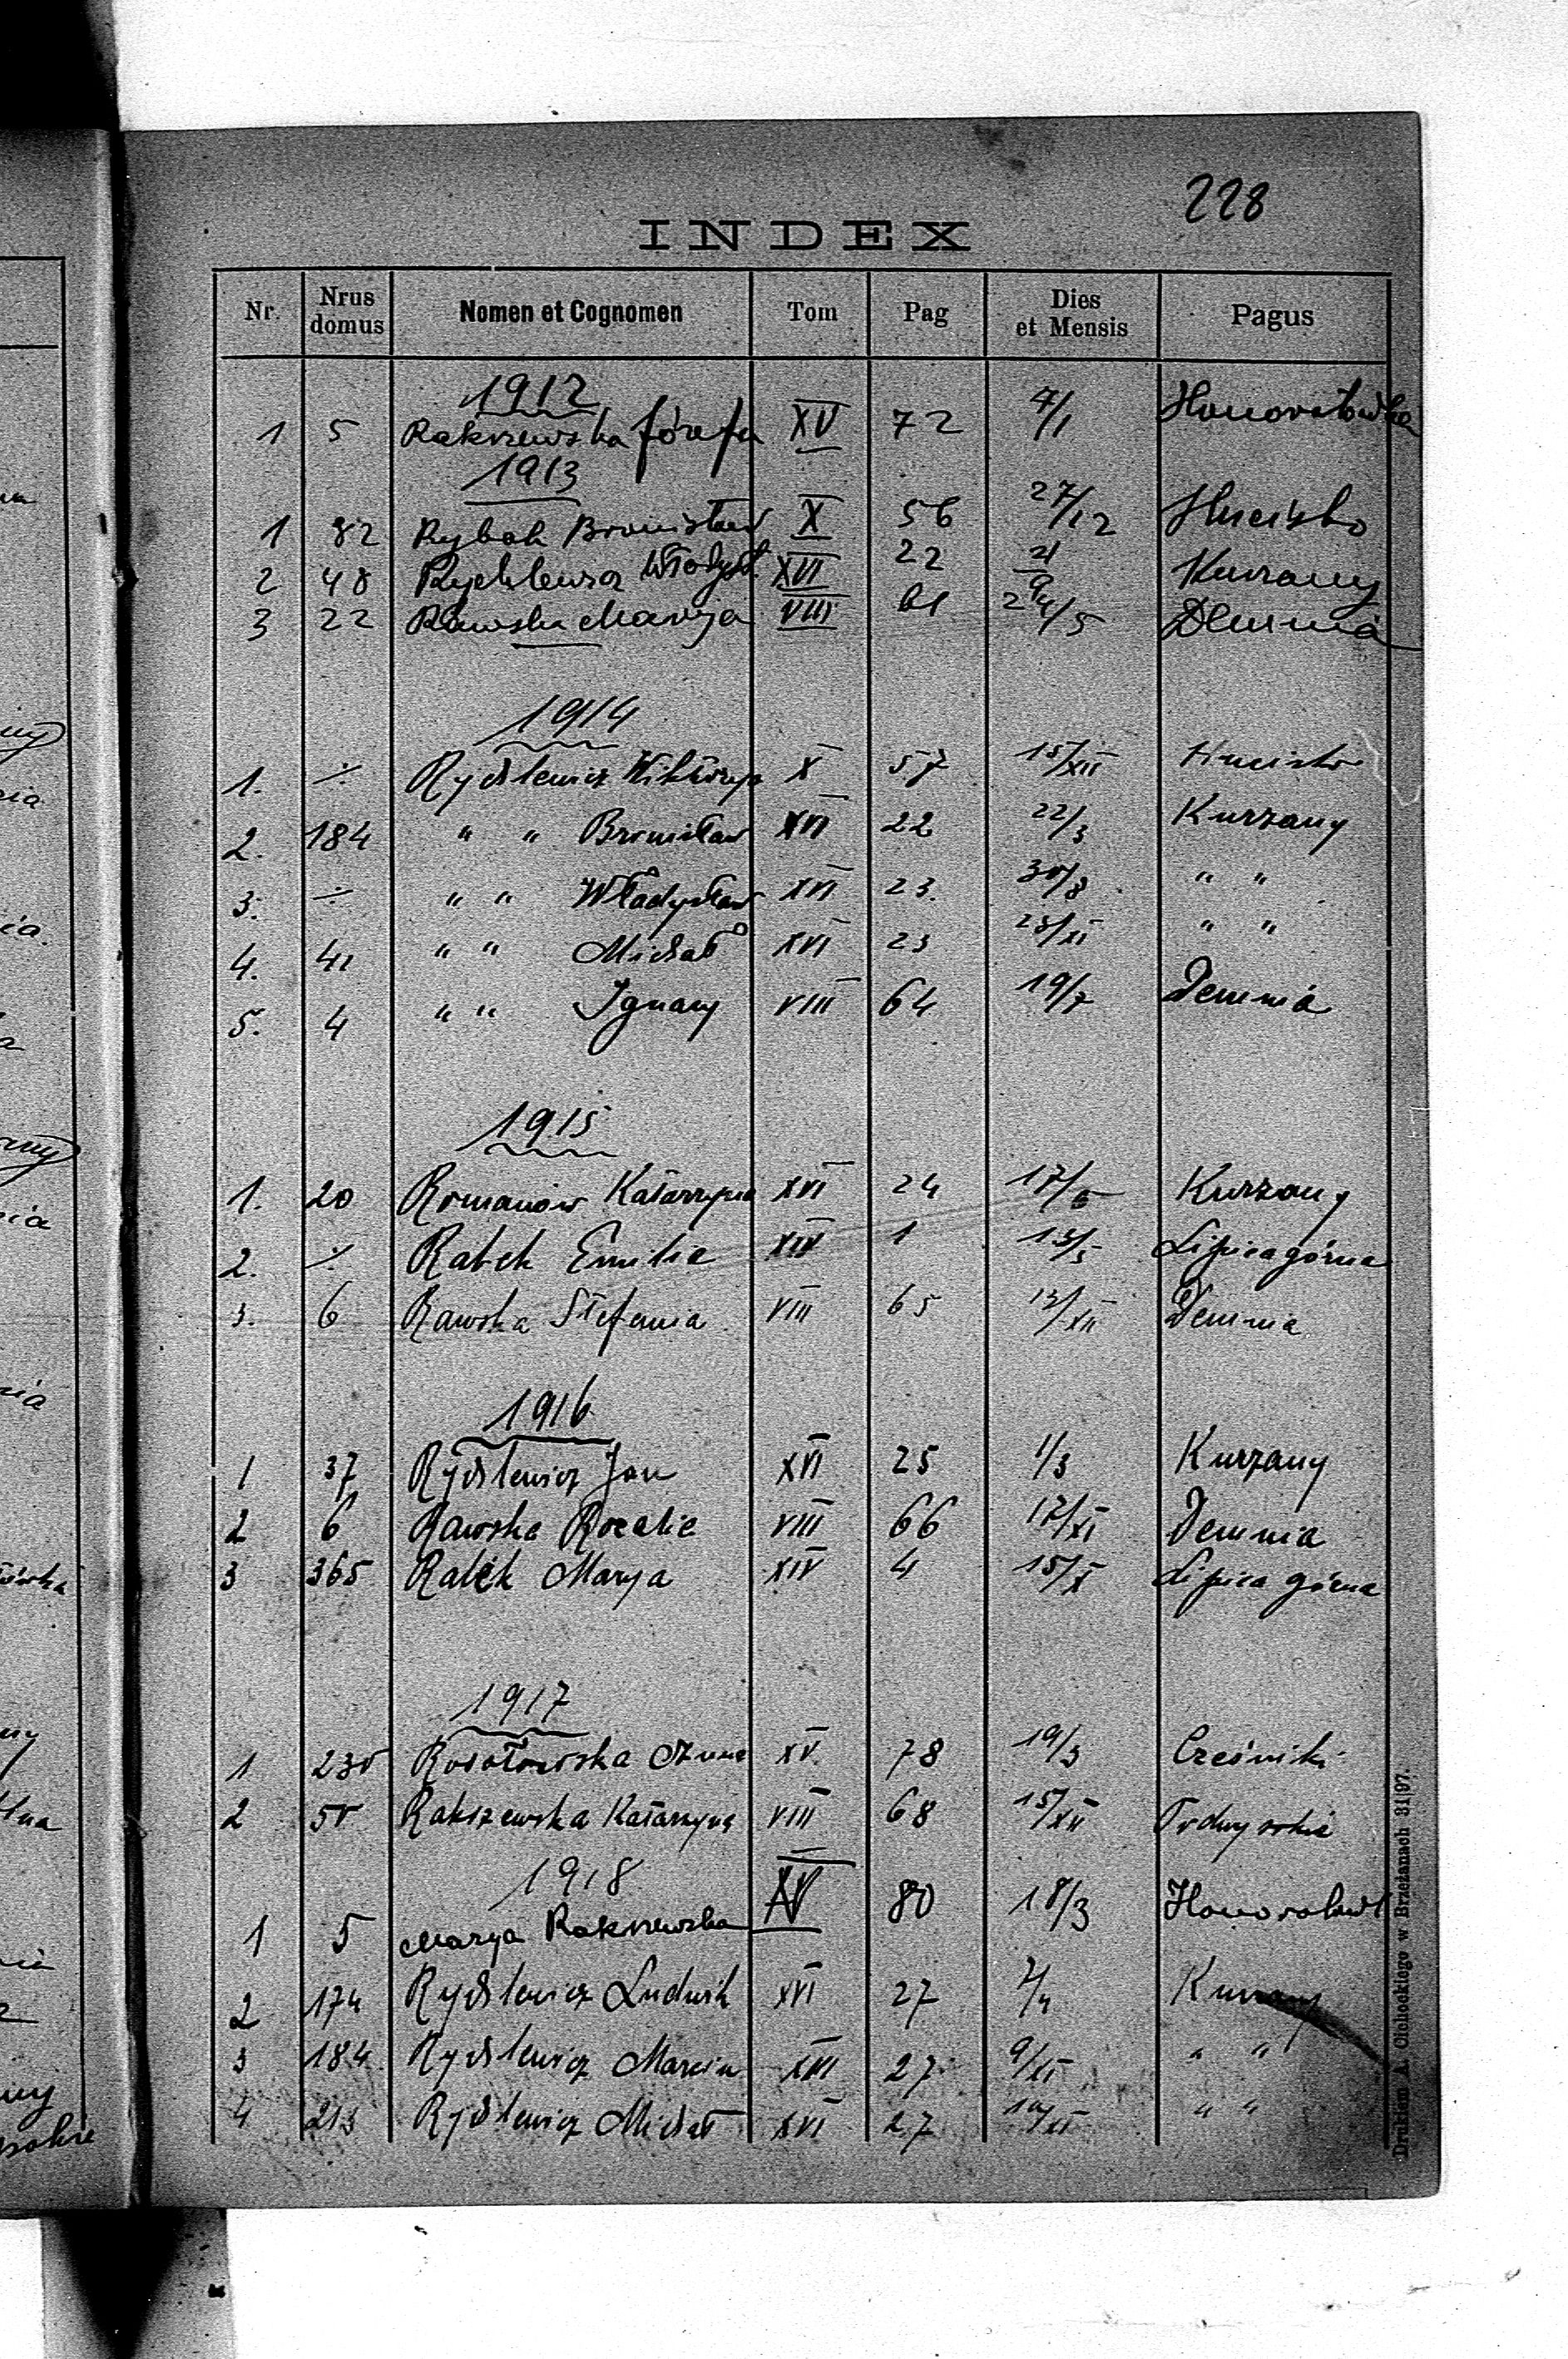 228
INDEX
Nr. Nrus domus Nomen et Cognomen Tom Pag Dies et Mensis Pagus
1912
1 5 Rakszewska Józefa XV 72 7/1 Honoratówka
1913
1 82 Rybak Bronisław X 56 27/12 Hucisko
2 48 Rychlewicz Władysł. XVI 22 Kurzany
3 22 Rawska Marya VIII 61 24/5 Demnia
1914
1. ·/· Rychlewicz Wiktorya X 57 15/XII Hucisko
2. 184 " " Bronisław XVI 22 22/3 Kurzany
3. ·/· " " Władysław XVI 23. 30/8 " "
4. 41 " " Michał XVI 23 23/XI " "
5. 4 " " Ignacy VIII 64 19/7 Demnia
1915
1. 20 Romanów Katarzyna XVI 24 17/6 Kurzany
2. ·/· Ratek Emilia XIV 1 13/5 Lipica górna
3. 6 Rawska Stefania VIII 65 12/XII Demnia
1916
1 37 Rychlewicz Jan XVI 25 1/3 Kurzany
2 6 Rawska Rozalia VIII 66 12/XI Demnia
3 365 Ratek Marya XIV 4 15/X Lipica górna
1917
1 230 Rosołowska Anna XV. 78 19/3 Cześniki
2 50 Rakszewska Katarzyna VIII 68 15/XII
1918
1 5 Marya Rakszewska XV 80 18/3 Honoratówk
2 174 Rychlewicz Ludwik XVI 27 7/4 Kurzany
3 184 Rychlewicz Marcin XVI 27 9/XI " "
4 213 Rychlewicz Michał XVI 27 " "
Drukiem A. Cichockiego w Brzeżanach 31|97.